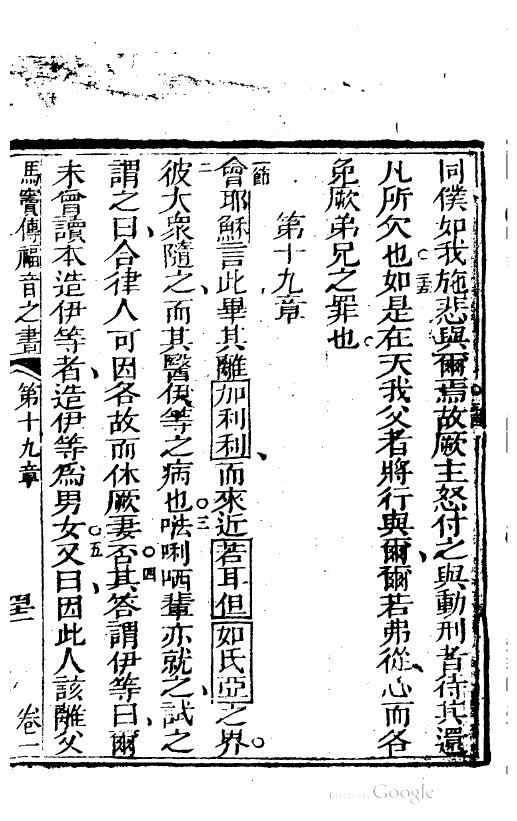 同僕如我施悲與爾焉。三四故厥主怒付之與動刑者待其還
凡所欠也。三五如是在天我父者將行與爾、爾若弗從心而各
免厥弟兄之罪也。
第十九章
一節會耶穌言此畢其離加利利、而來近若耳但如氏亞之界。
二彼大衆隨之、而其醫伊等之病也。三𠵽唎哂輩亦就之、試之
謂之曰、合律人可因各故而休厥妻否。四其答謂伊等曰、爾
未曾讀本造伊等者、造伊等爲男女。五又曰、因此人該離父
馬竇傳福音之書 第十九章 四二 卷一
Digitized by Google